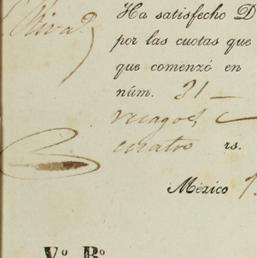 Ha satisfecho D
por las cuotas que
que comenzó en
núm. 21
cuatro rs.
México
Vº Bº